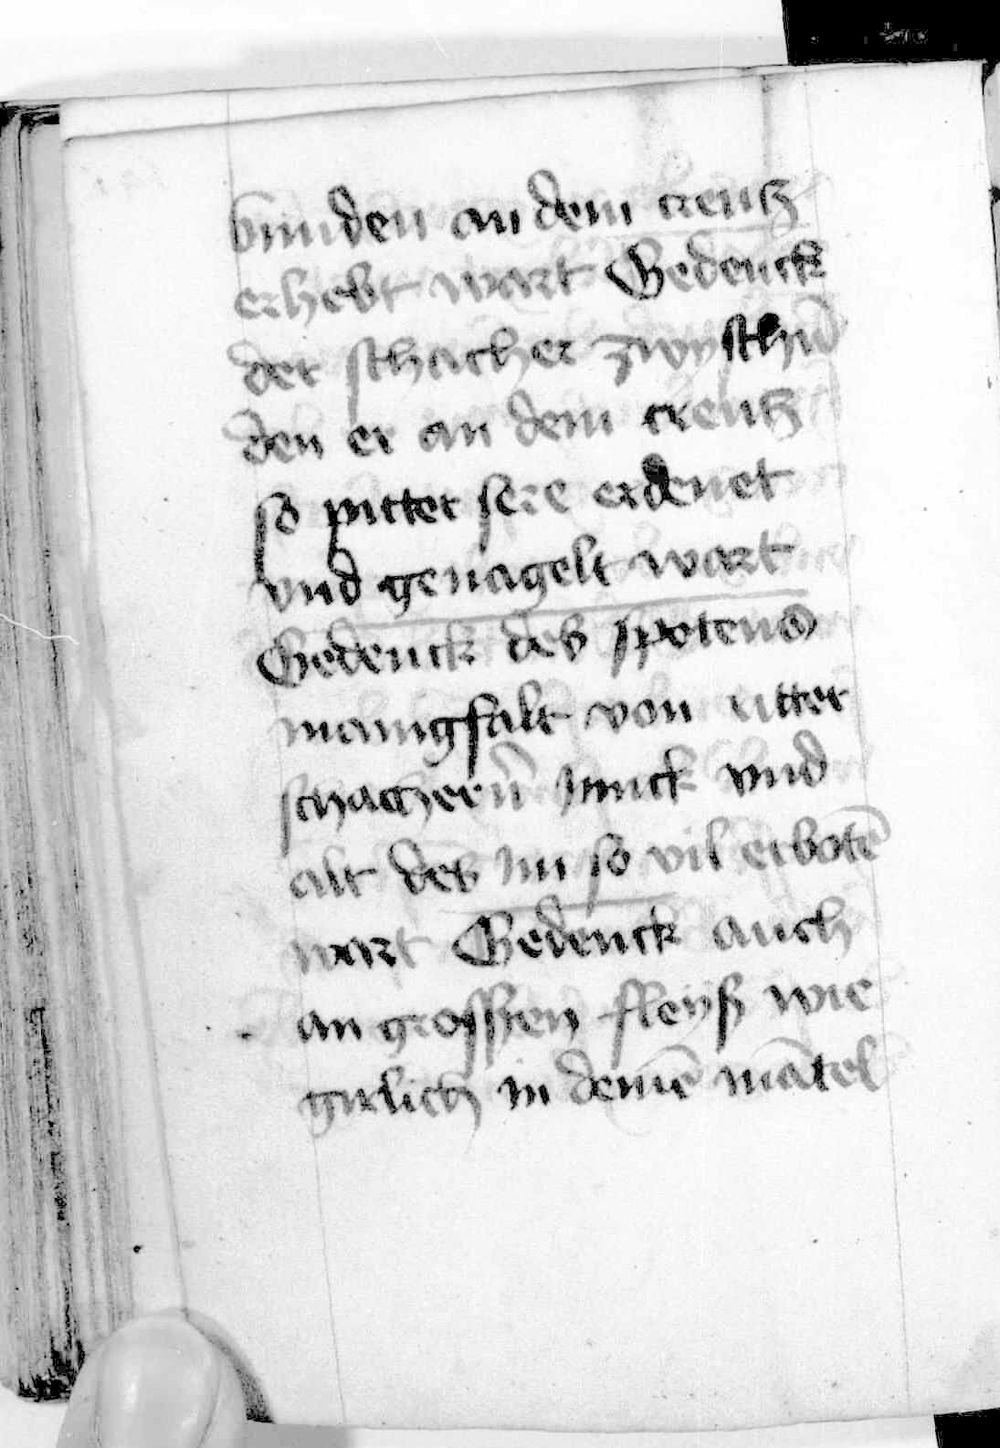 bunden an dem creutz
erhebt wart Gedenck
der schacher zwyschn̄
den er an dem creutz
so pitter sere erdenet
vnd genagelt wart
Gedenck des spotens
manigfalt von ritter
schachern̄ Junck vnd
alt des Im so vil erbotē
wart Gedenck auch
an grossen fleyß wie
in deinē mātel